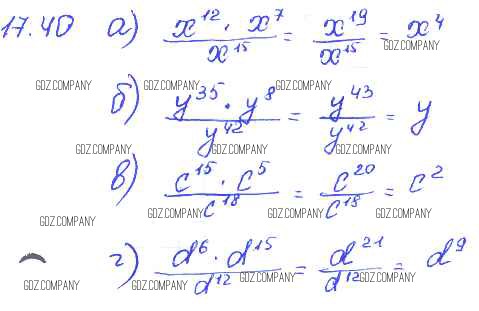 17.40 а) x^12 · x^7 / x^15 = x^19 / x^15 = x^4
GDZ.COMPANY
GDZ.COMPANY GDZ.COMPANY GDZ.COMPANY
б) y^35 · y^8 / y^42 = y^43 / y^42 = y
GDZ.COMPANY GDZ.COMPANY GDZ.COMPANY
в) c^15 · c^5 / c^18 = c^20 / c^18 = c^2
GDZ.COMPANY GDZ.COMPANY GDZ.COMPANY GDZ.COMPANY
г) d^6 · d^15 / d^12 = d^21 / d^12 = d^9
GDZ.COMPANY GDZ.COMPANY GDZ.COMPANY GDZ.COMPANY